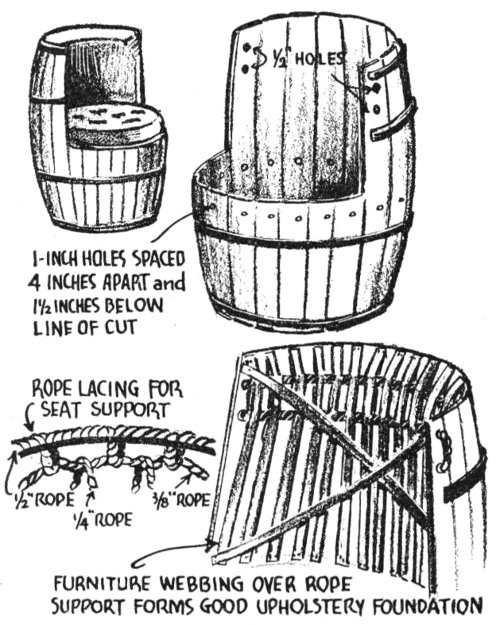 ½" HOLES
1-INCH HOLES SPACED
4 INCHES APART and
1½ INCHES BELOW
LINE OF CUT
ROPE LACING FOR
SEAT SUPPORT
½" ROPE
¼" ROPE
3/8" ROPE
FURNITURE WEBBING OVER ROPE
SUPPORT FORMS GOOD UPHOLSTERY FOUNDATION